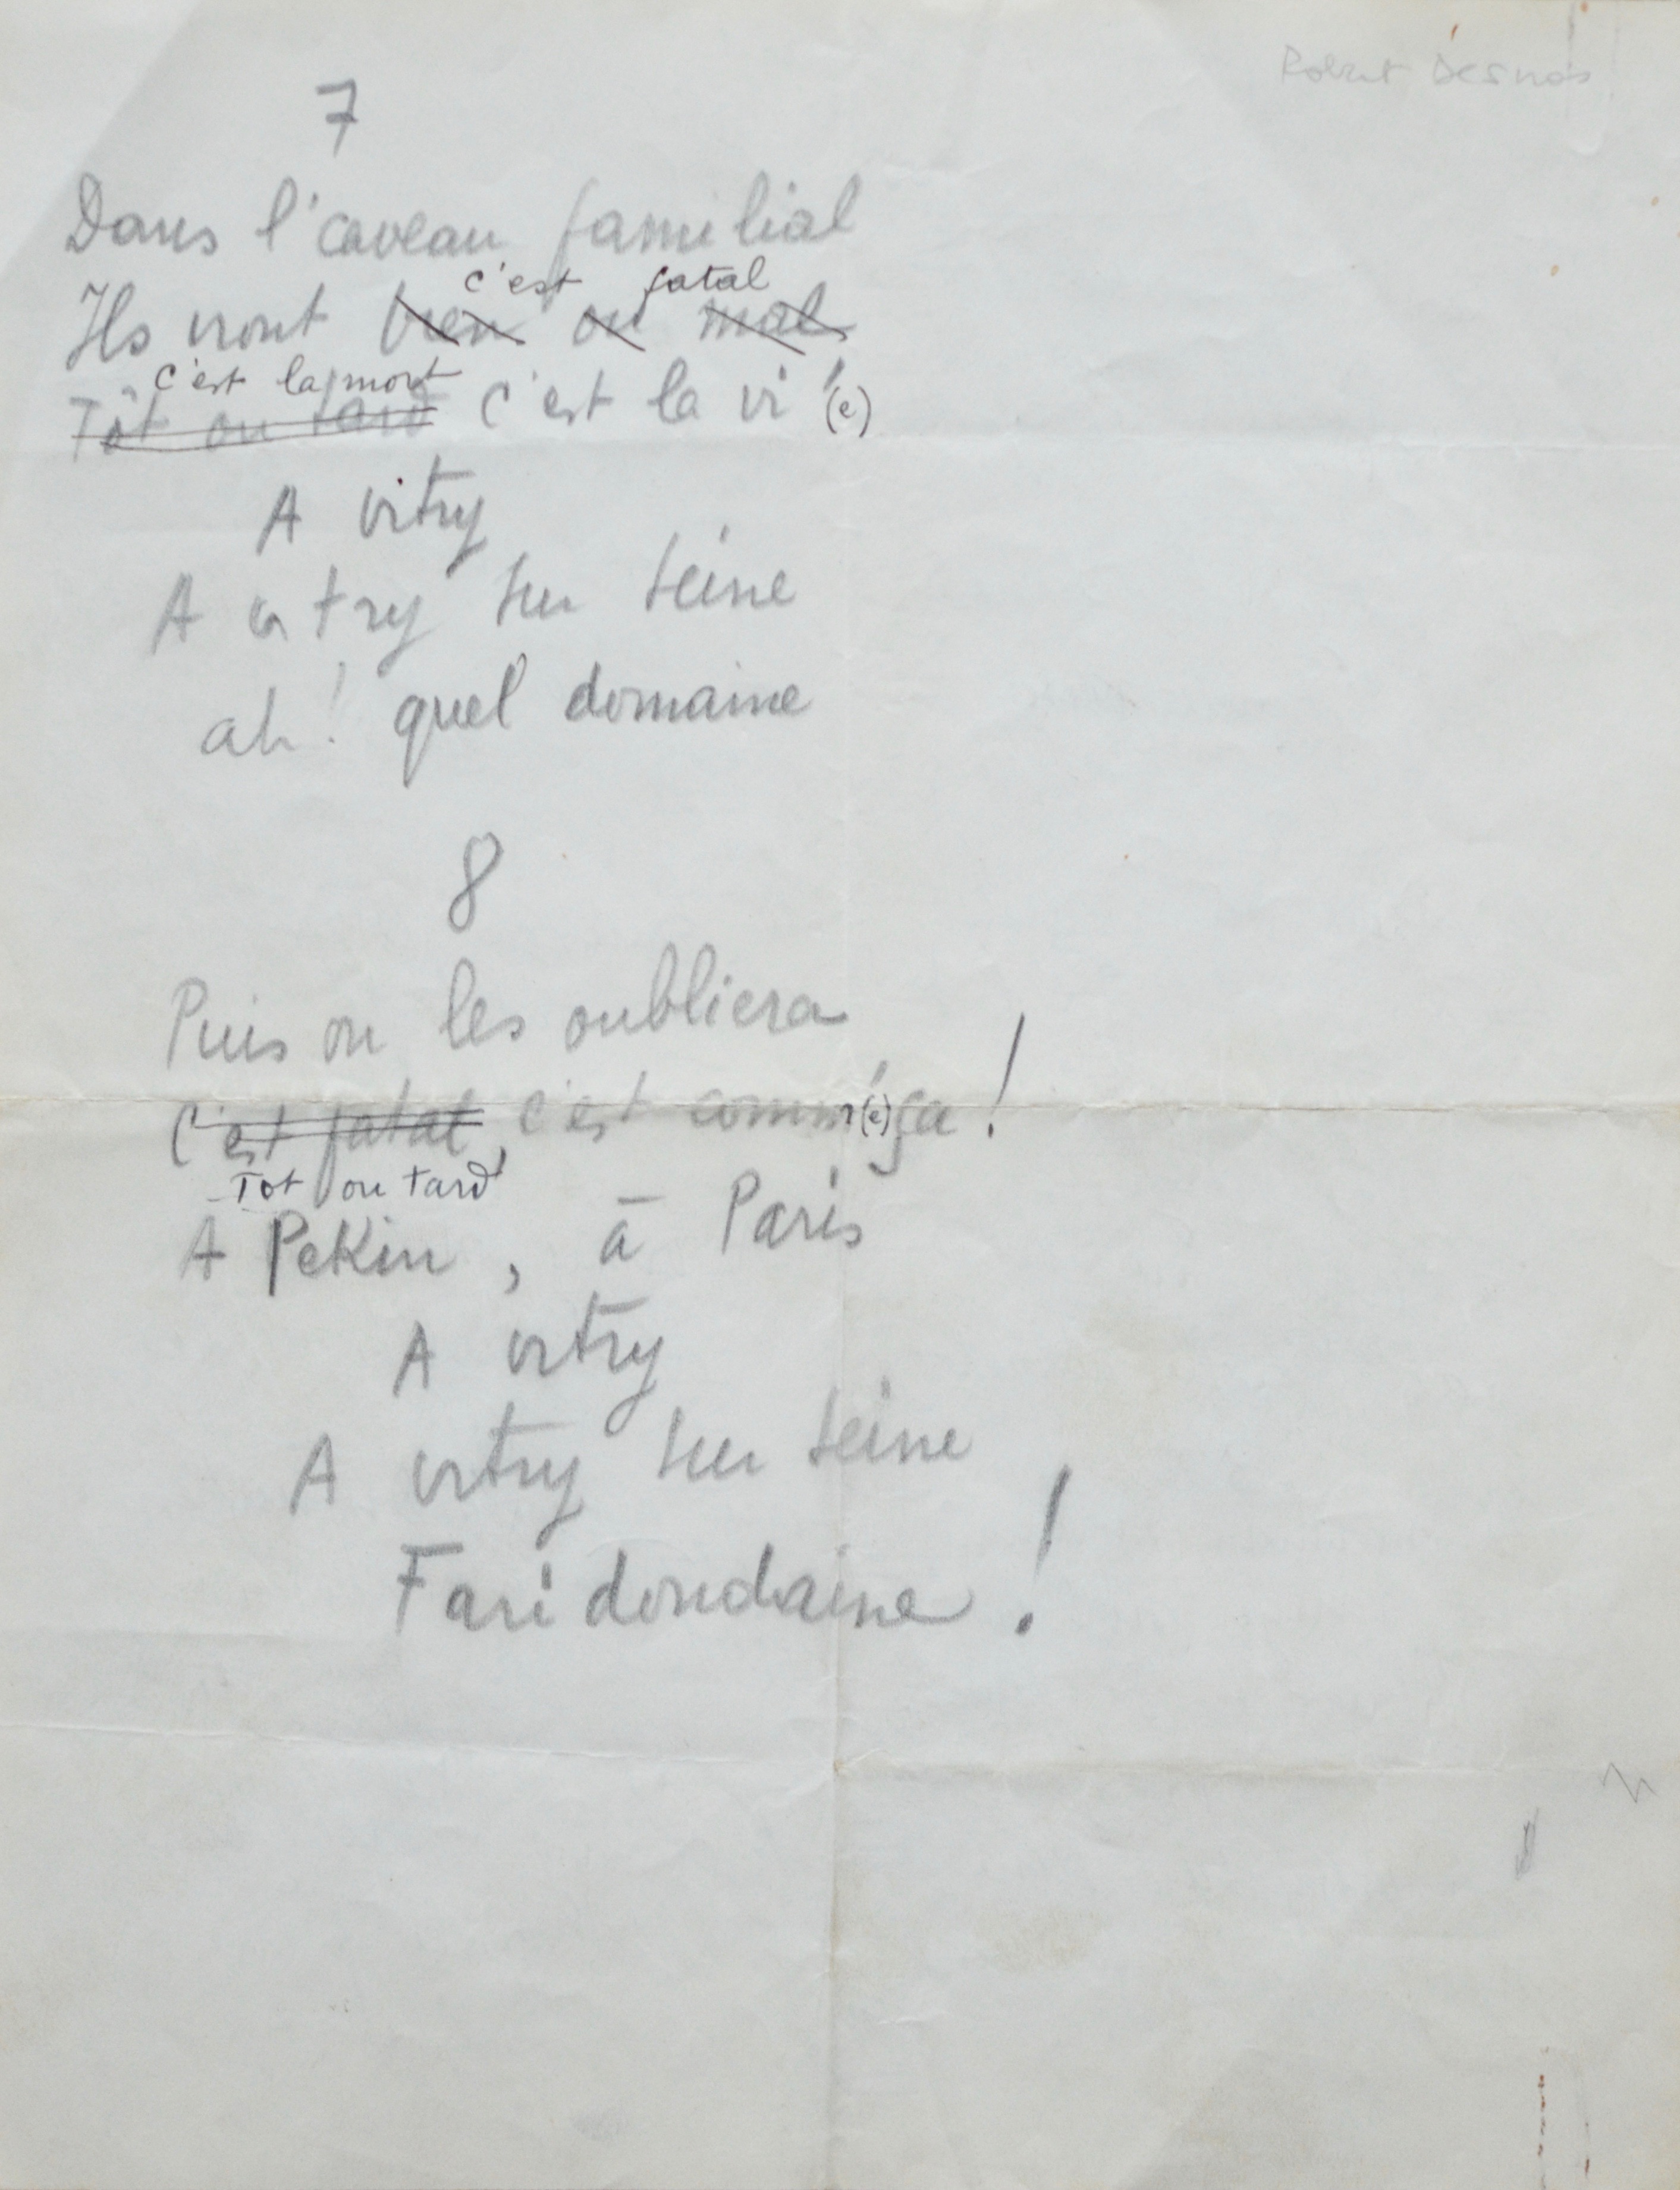 Robert Desnos
7
Dans l'caveau familial
c'est fatal
Ils iront bien ou mal
c'est la mort
Tôt ou tard c'est la vi'(e)
A vitry
A vitry sur seine
ah! quel domaine
8
Puis on les oubliera
C'est fatal, c'est comm'(e) ça!
Tot ou tard
A Pekin, à Paris
A vitry
A vitry sur seine
Faridondaine!